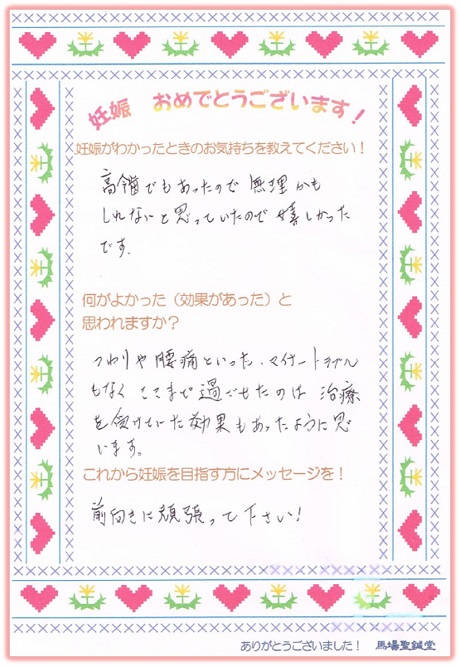 妊娠 おめでとうございます!
妊娠がわかったときのお気持ちを教えてください!
高齢でもあったので無理かも
しれないと思っていたので嬉しかった
です.
何がよかった(効果があった)と
思われますか?
つわりや腰痛といった、マイナートラブル
もなくここまで過ごせたのは 治療
を受けていた効果もあったように思
います。
これから妊娠を目指す方にメッセージを!
前向きに頑張って下さい!
ありがとうございました! 馬場聖鍼堂